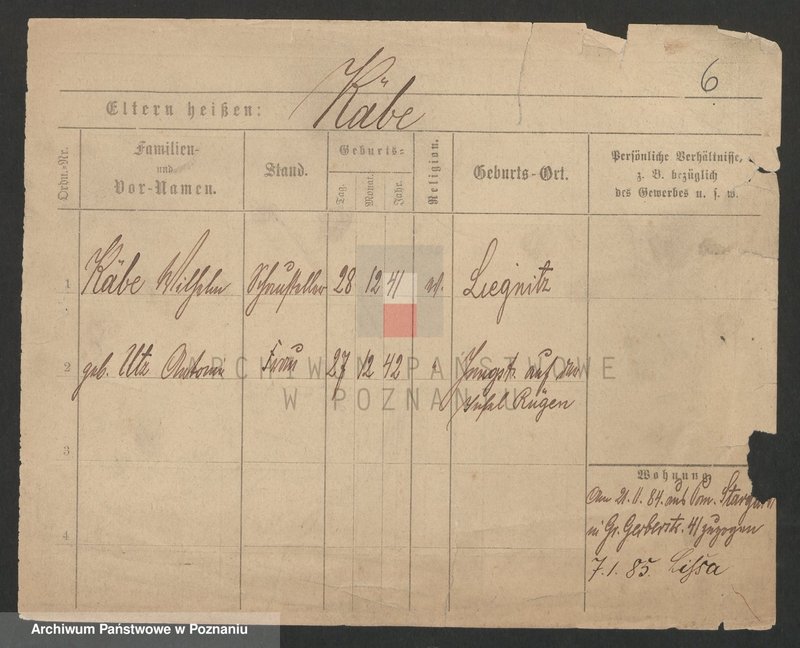 6
Eltern heißen: Käbe
Ordn.-Nr.
Familien-
und
Vor-Namen.
Stand.
Geburts-
Tag.
Monat.
Jahr.
Religion.
Geburts-Ort.
Persönliche Verhältnisse,
z. B. bezüglich
des Gewerbes u. s. w.
1 Käbe Wilhelm Schausteller 28 12 41 ev. Liegnitz
2 geb. Utz Frau 27 12 42 " auf der
Insel Rügen
3
4
Wohnung
Am 21. 11. 84 aus Pom. Stargard
in Gr. Gerberstr. 41 zuzogen
7. 1. 85. Lissa
ARCHIWUM PAŃSTWOWE
W POZNANIU
Archiwum Państwowe w Poznaniu